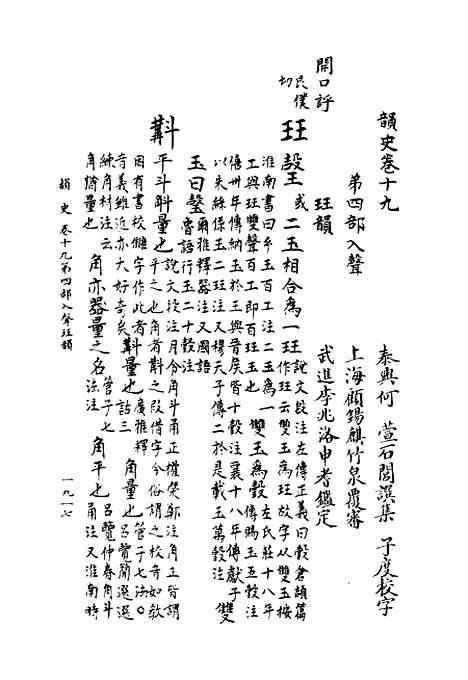 韻史卷十九
泰興何 萱石閭譔集 子度校字
第四部入聲
上海顧錫麒竹泉覆審
珏韻
武進李兆洛申耆鑑定
開口呼
艮僕切
珏
㱿
玉或
二玉相合爲一珏
說文段注左傳正義曰瑴倉頡篇
作珏云雙玉爲珏故字从雙玉按
淮南書曰玄玉百工注二玉爲一
工與珏雙聲百工即百珏玉也
雙玉爲瑴
左氏莊十八年
傳賜玉五瑴注
僖卅年傳納玉於王與晉矦皆十瑴注襄十八年傳獻子
以朱絲係玉二珏注又穆天子傳二於是載玉萬瑴注
雙
玉曰瑴
爾雅釋器注又國語
魯語行玉二十瑴注
㪲
平斗斛量也
說文段注月令角斗甬正權槩鄭注角正皆謂
平之也角者㪲之叚借字今俗謂之校音如敎
因有書校讎字作此者
音義雖近亦大好奇矣
㪲量也
廣雅釋
詁三
角量也
管子七法。
呂覽簡選選
練角材注云
角猶量也
角亦器量之名
管子七
法注
角平也
呂覽仲春角斗
甬注又淮南時
韻史 卷十九第四部入聲珏韻
一九一七